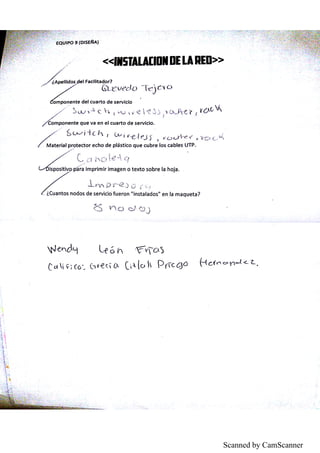 EQUIPO 9 (DISEÑA)
<<INSTALACION DE LA RED>>
¿Apellidos del Facilitador?
Quevedo Tejero
Componente del cuarto de servicio
Switch, wireless, router, rack
Componente que va en el cuarto de servicio.
Switch, wireless, router, rack
Material protector echo de plástico que cubre los cables UTP.
Canaleta
Dispositivo para imprimir imagen o texto sobre la hoja.
Impresora
¿Cuantos nodos de servicio fueron "instalados" en la maqueta?
8 nodos
Wendy León Frías
Califico: Grecia Citlali Priego Hernandez.
Scanned by CamScanner